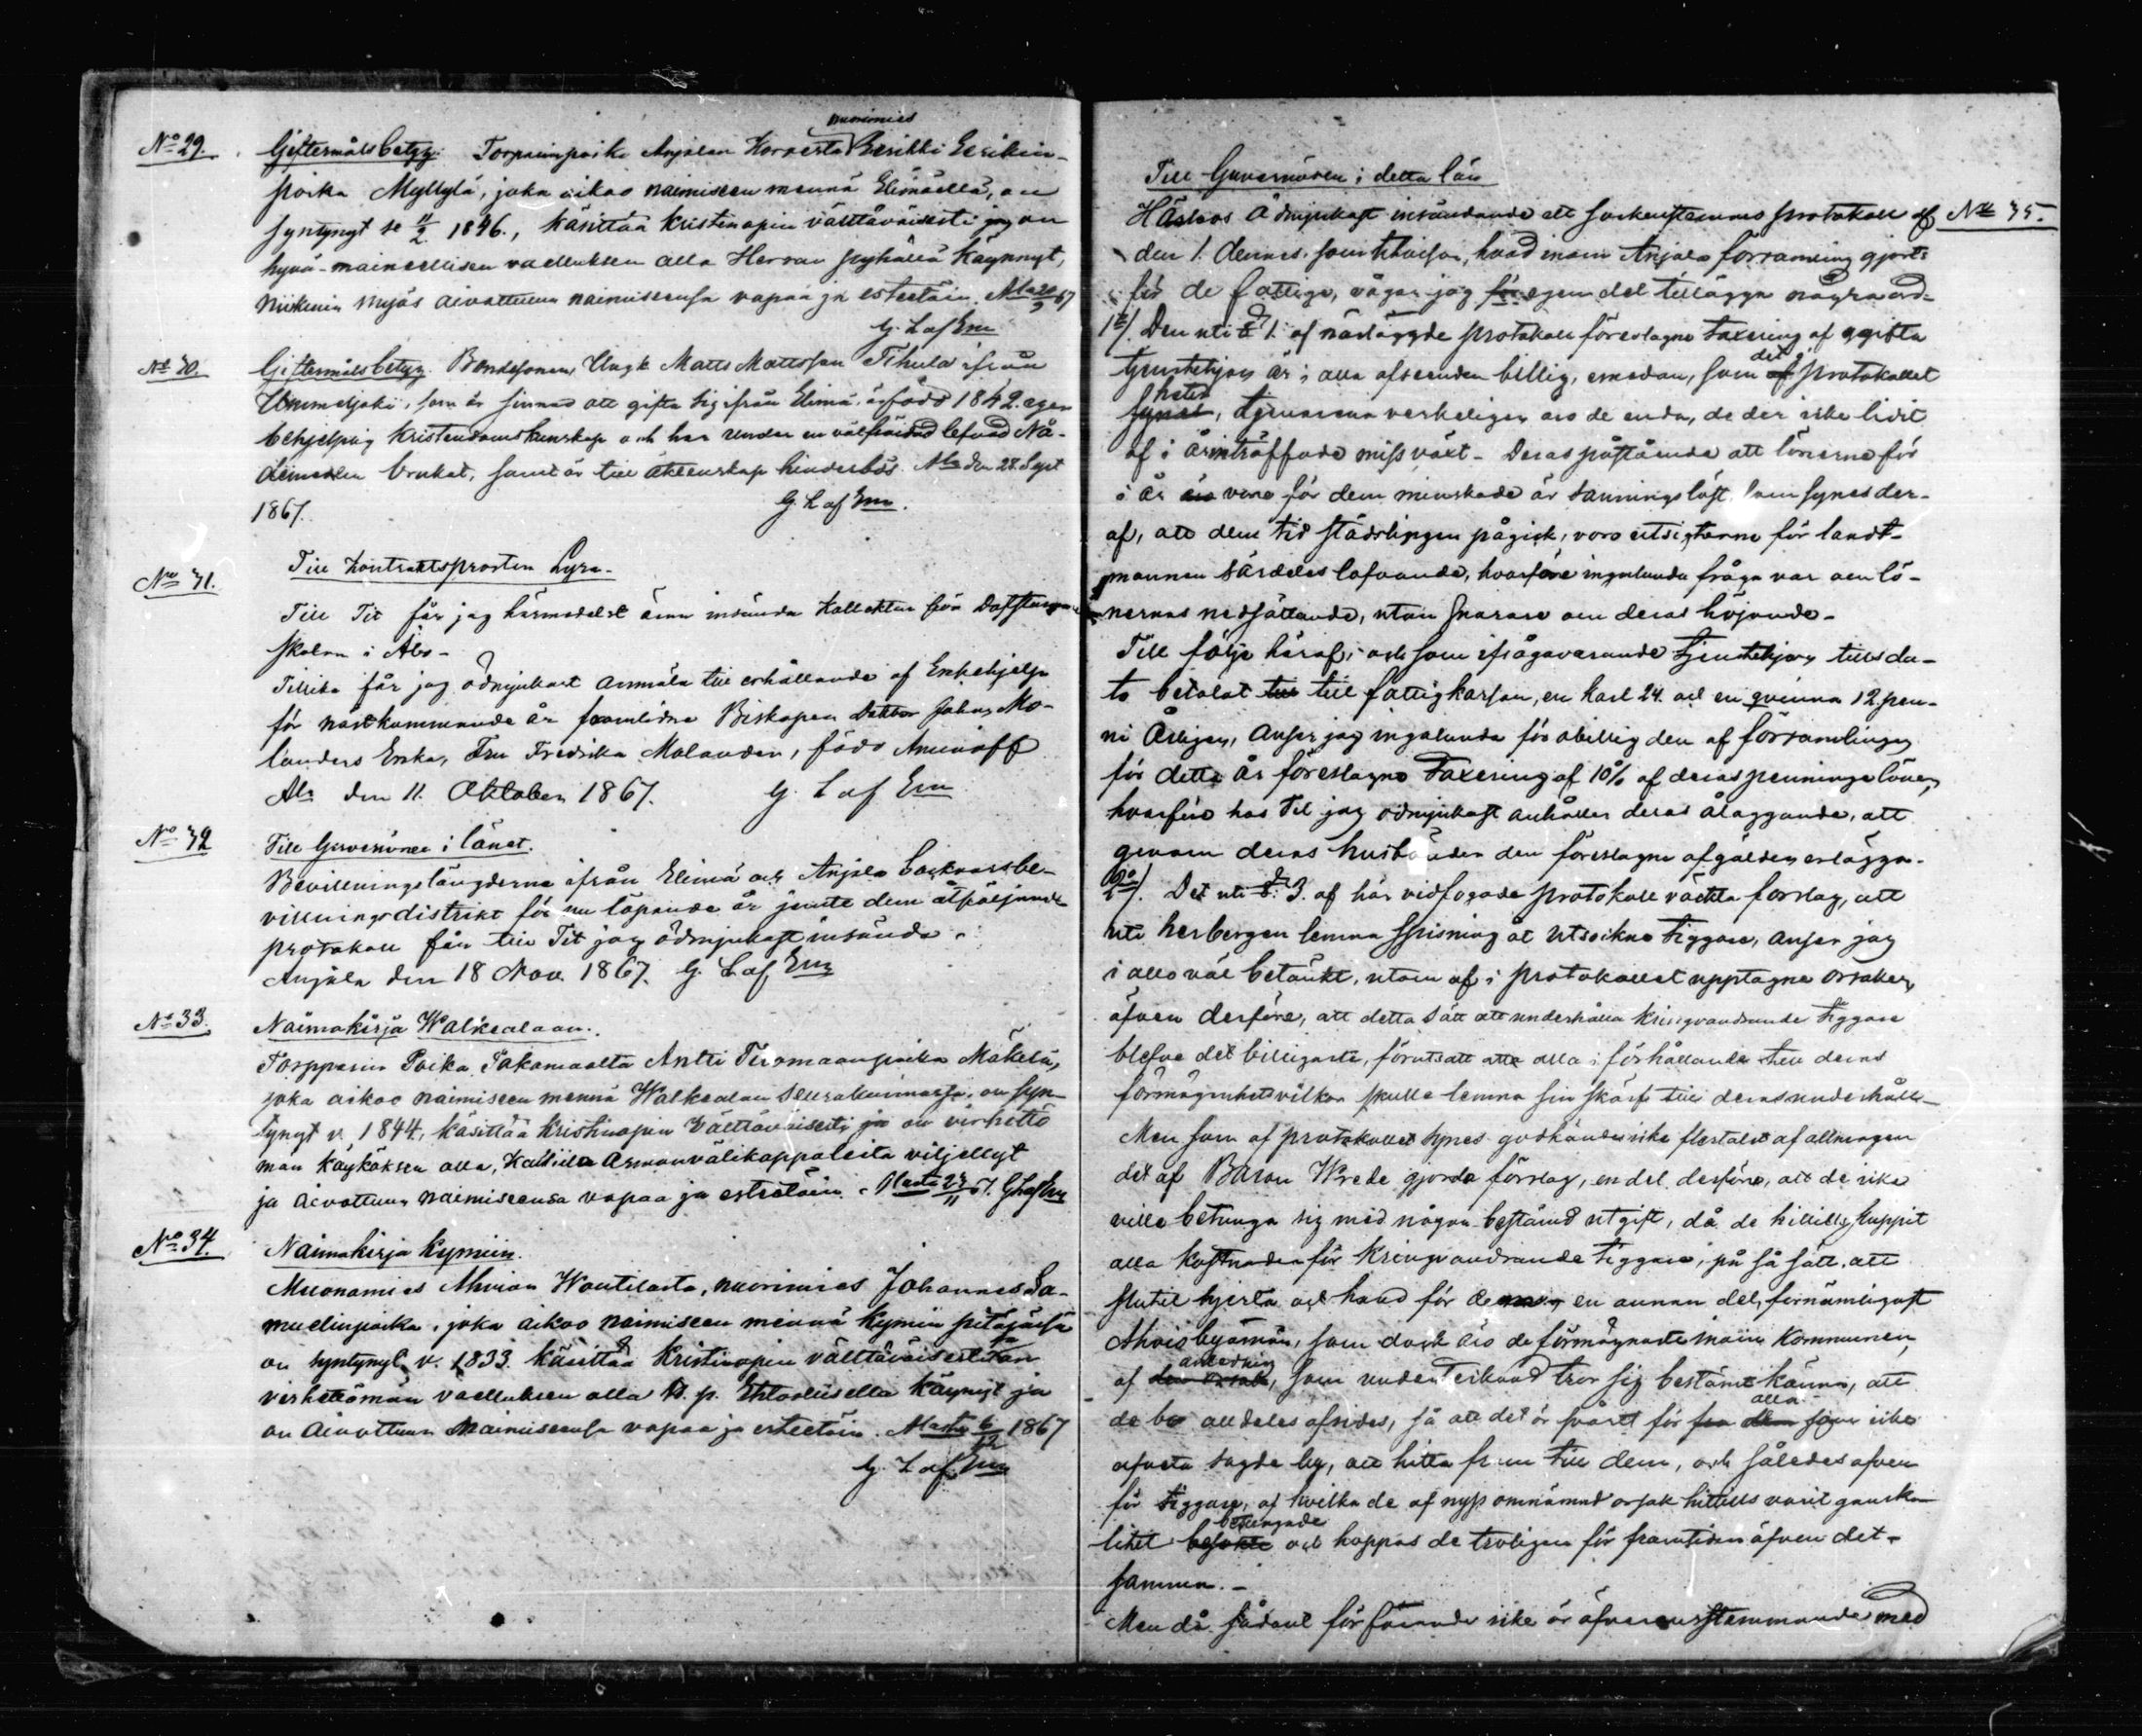 nuorimies
No 29. Giftermålsbetyg: Torpanpoika Anjalan Eerikki Eerikin-
poika Myllylä, joka aikoo naimiseen mennä Elimäellä, on
syntynyt se 11/2 1846., käsittää Kristinopin välttäväisesti ja on
hyvä-maineellisen vaelluksen alla Herran pyhällä käynnyt,
niinkuin myös aivottuun naimiseensa vapaa ja esteetöin.
G. L af Em
No 30. Giftermålsbetyg. Bondesonen, Ungk Matts Mattsson Tihula ifrån
Ummeljoki, som är sinnad att gifta sig ifrån Elimä, är född 1842. eger
behjelplig Kristendomskunskap och har under en välfräjdad lefnad Nå-
demedlen brukat, samt är till äktenskap hinderlös. Ala den 28 Sept
1867. G. L af Em.
No 31. Till Kontraktsprosten Lyra.
Till Tit får jag härmedelst äran insända Kollekten för Döfstumme
skolan i Åbo-
Tillika får jag ödmjukast anmäla till erhållande af Enkehjelp
för nästkommande år framlidne Biskopen Doktor Johan Mo-
landers Enka, Fru Fredrika Molander, född Aminoff
Ala den 11. Oktober 1867. G. L af Em
No 32 Till Guvernören i länet.
Bevillningslängderna ifrån Elimä och Anjala Socknars be-
villningsdistrikt för nu löpande år jemte dem åtföljande
protokoll får till Tit jag ödmjukast insända.
Anjala den 18 Nov. 1867. G. L af Em
No 33. Naimakirja Walkealaan.
Torpparin Poika Takamaalta Antti Tuomaanpoika Mäkelä,
joka aikoo naimiseen mennä Walkealan seurakunnassa, on syn-
tynyt v. 1844, käsittää kristinopin välttäväisesti ja on virhettö
män käytöksen alla, Kalliila Armonvälikappaleita viljellyt
ja aivottuun naimiseensa vapaa ja esteetöin. G L af Em
No 34. Naimakirja Kymiin.
Muonamies Ahvion Woutilasta, nuorimies Johannes Sa-
muelinpoika, joka aikoo naimiseen mennä Kymin pitäjässä
on syntynyt v. 1833. käsittää Kristinopin välttäväisesti
virhettömän vaelluksen alla H. p. Ehtoollisella käynyt ja
on aivottuun naimiseensa vapaa ja esteetöin. 6/12 1867
G. L af Em
Till Guvernören i detta län
No 35.
Häraos ödmjukast insändande ett sockenstemmo protokoll af
den 1. dennes, som utvisar, hvad inom Anjala församling gjorts
för de fattige, vågar jag för egen del tillägga några ord-
1o/. Den uti § 1 af närlagde protokoll föreslagne taxering af ogifta
tjenstehjon är i alla afseenden billig, emedan, som det af protokollet
heter synes, tjenarena verkeligen äro de enda, de der icke lidit
af i år inträffade missväxt - Deras påstående att lönerne för
i år äro vore för dem minskade är sanningslöst. som synes der-
af, att den tid städslingen pågick, voro utsigterne för landt-
mannen särdeles lofvande, hvarföre ingalunda fråga var om lö-
nernas nedsättande, utan snarare om deras höjande-
Till följe häraf, och som ifrågavarande tjenstehjon tills da-
to betalat till till fattigkassan, en karl 24. och en qvinna 12 pen-
ni Årligen, anser jag ingalunda för obillig den af församlingen
för detta år föreslagne taxering af 10% af deras penningelöner,
hvarföre hos Tit jag ödmjukast anhåller deras åläggande, att
genom deras husbönder den föreslagne afgälden erlägga-
2o/. Det uti § 3. af här vidfogade protokoll väckta förslag, att
uti herbergen lemna spisning åt utsocknes tiggare, anser jag
i allo väl betänkt, utom af i protokollet upptagne orsaker,
äfven derföre, att detta sätt att underhålla kringvandrande tiggare
blefve det billigaste, förutsatt att alla i förhållande till deras
förmögenhetsvilkor skulle lemna sin skärf till deras underhåll-
Men som af protokollet synes godkände icke flertalet af allmogen
det af Baron Wrede gjorda förslag, en del derföre, att de icke
ville betunga sig med någon bestämd utgift, då de hittills sluppit
alla kostnader för kringvandrande tiggare, på så sätt, att
slutit hjerta och hand för dem, en annan del, fornämligast
Ahvio byamän, som dock äro de förmögnaste inom kommunen,
anledning
af den orsak, som tror sig bestämt känna, att
alla
de bo alldeles afsides, så att det är svårt för som icke
sagde by, att hitta fram till dem, och således äfven
för tiggare, af hvilka de af nyss omnämnd orsak hittills varit ganska
betungade
litet besökte och hoppas de troligen för framtiden äfven det-
samma. -
Men då sådant förfarande icke är öfverensstemmande med